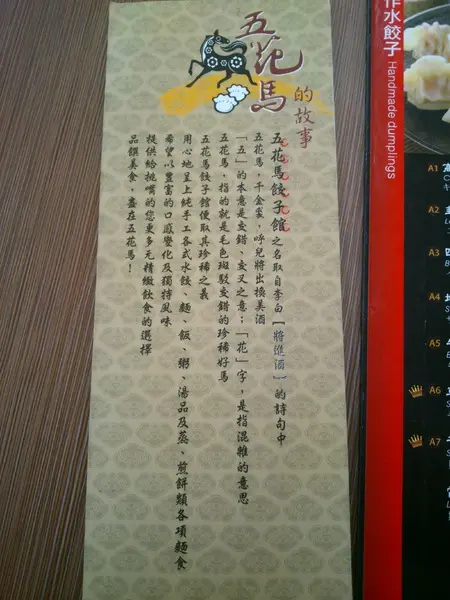 五花馬的故事
五花馬餃子館之名取自李白【將進酒】的詩句中
五花馬，千金裘，呼兒將出換美酒
「五」的本意是交錯、交叉之意；「花」字，是指混雜的意思
五花馬，指的就是毛色斑駁交錯的珍稀好馬
五花馬餃子館便取其珍稀之義
用心地呈上純手工各式水餃、麵、飯、粥、湯品及蒸、煎餅類各項麵食
希望以豐富的口感變化及獨特風味
提供給挑嘴的您更多元精緻飲食的選擇
品饌美食，盡在五花馬！
作水餃子 Handmade dumplings
A1
A2
A3
A4
A5
A6
A7